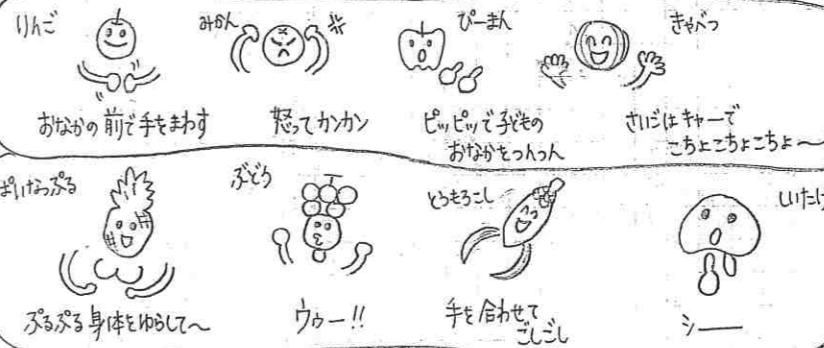 りんご
おなかの前で手をまわす
みかん
怒ってカンカン
ぴーまん
ピッピッで子どもの
おなかをつんつん
きゃべつ
さいごはキャーで
こちょこちょこちょ〜
ぱいなっぷる
ぷるぷる身体をゆらして〜
ぶどう
ウゥー!!
とうもろこし
手を合わせて
ごしごし
しいたけ
シ――